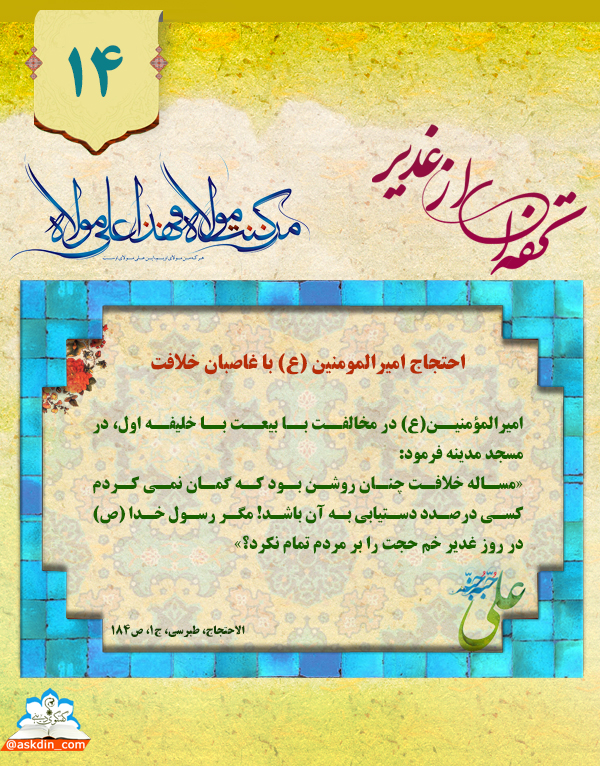 ۱۴
تحفه‌ای از غدیر
من کنت مولاه فهذا علی مولاه
هر که من مولای اویم این علی مولای اوست
احتجاج امیرالمومنین (ع) با غاصبان خلافت
امیرالمؤمنین(ع) در مخالفت با بیعت با خلیفه اول، در
مسجد مدینه فرمود:
«مساله خلافت چنان روشن بود که گمان نمی کردم
کسی درصدد دستیابی به آن باشد! مگر رسول خدا (ص)
در روز غدیر خم حجت را بر مردم تمام نکرد؟»
علی حبه جنة
الاحتجاج، طبرسی، ج۱، ص۱۸۴
@askdin_com